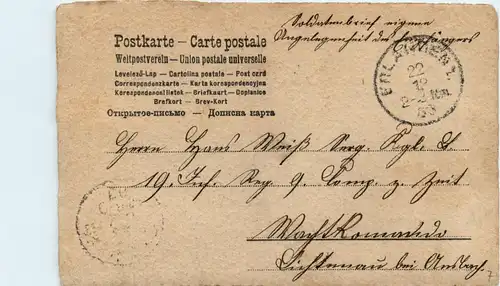 Soldatenbrief eigene
Angelegenheit des Empfängers
Postkarte – Carte postale
Weltpostverein – Union postale universelle
Levelező-Lap – Cartolina postale – Post card
Correspondenzkarte – Karta korespondencyjna
Korespondenční lístek – Briefkaart – Dopisnice
Brefkort – Brev-Kort
Открытое-письмо – Дописна карта
ERLANGEN 1.
Herrn Hans Weiß Serg. Kgl. b.
19. Inf. Reg 9. Comp z. Zeit
Wachtkomando
Lichtenau bei Ansbach.